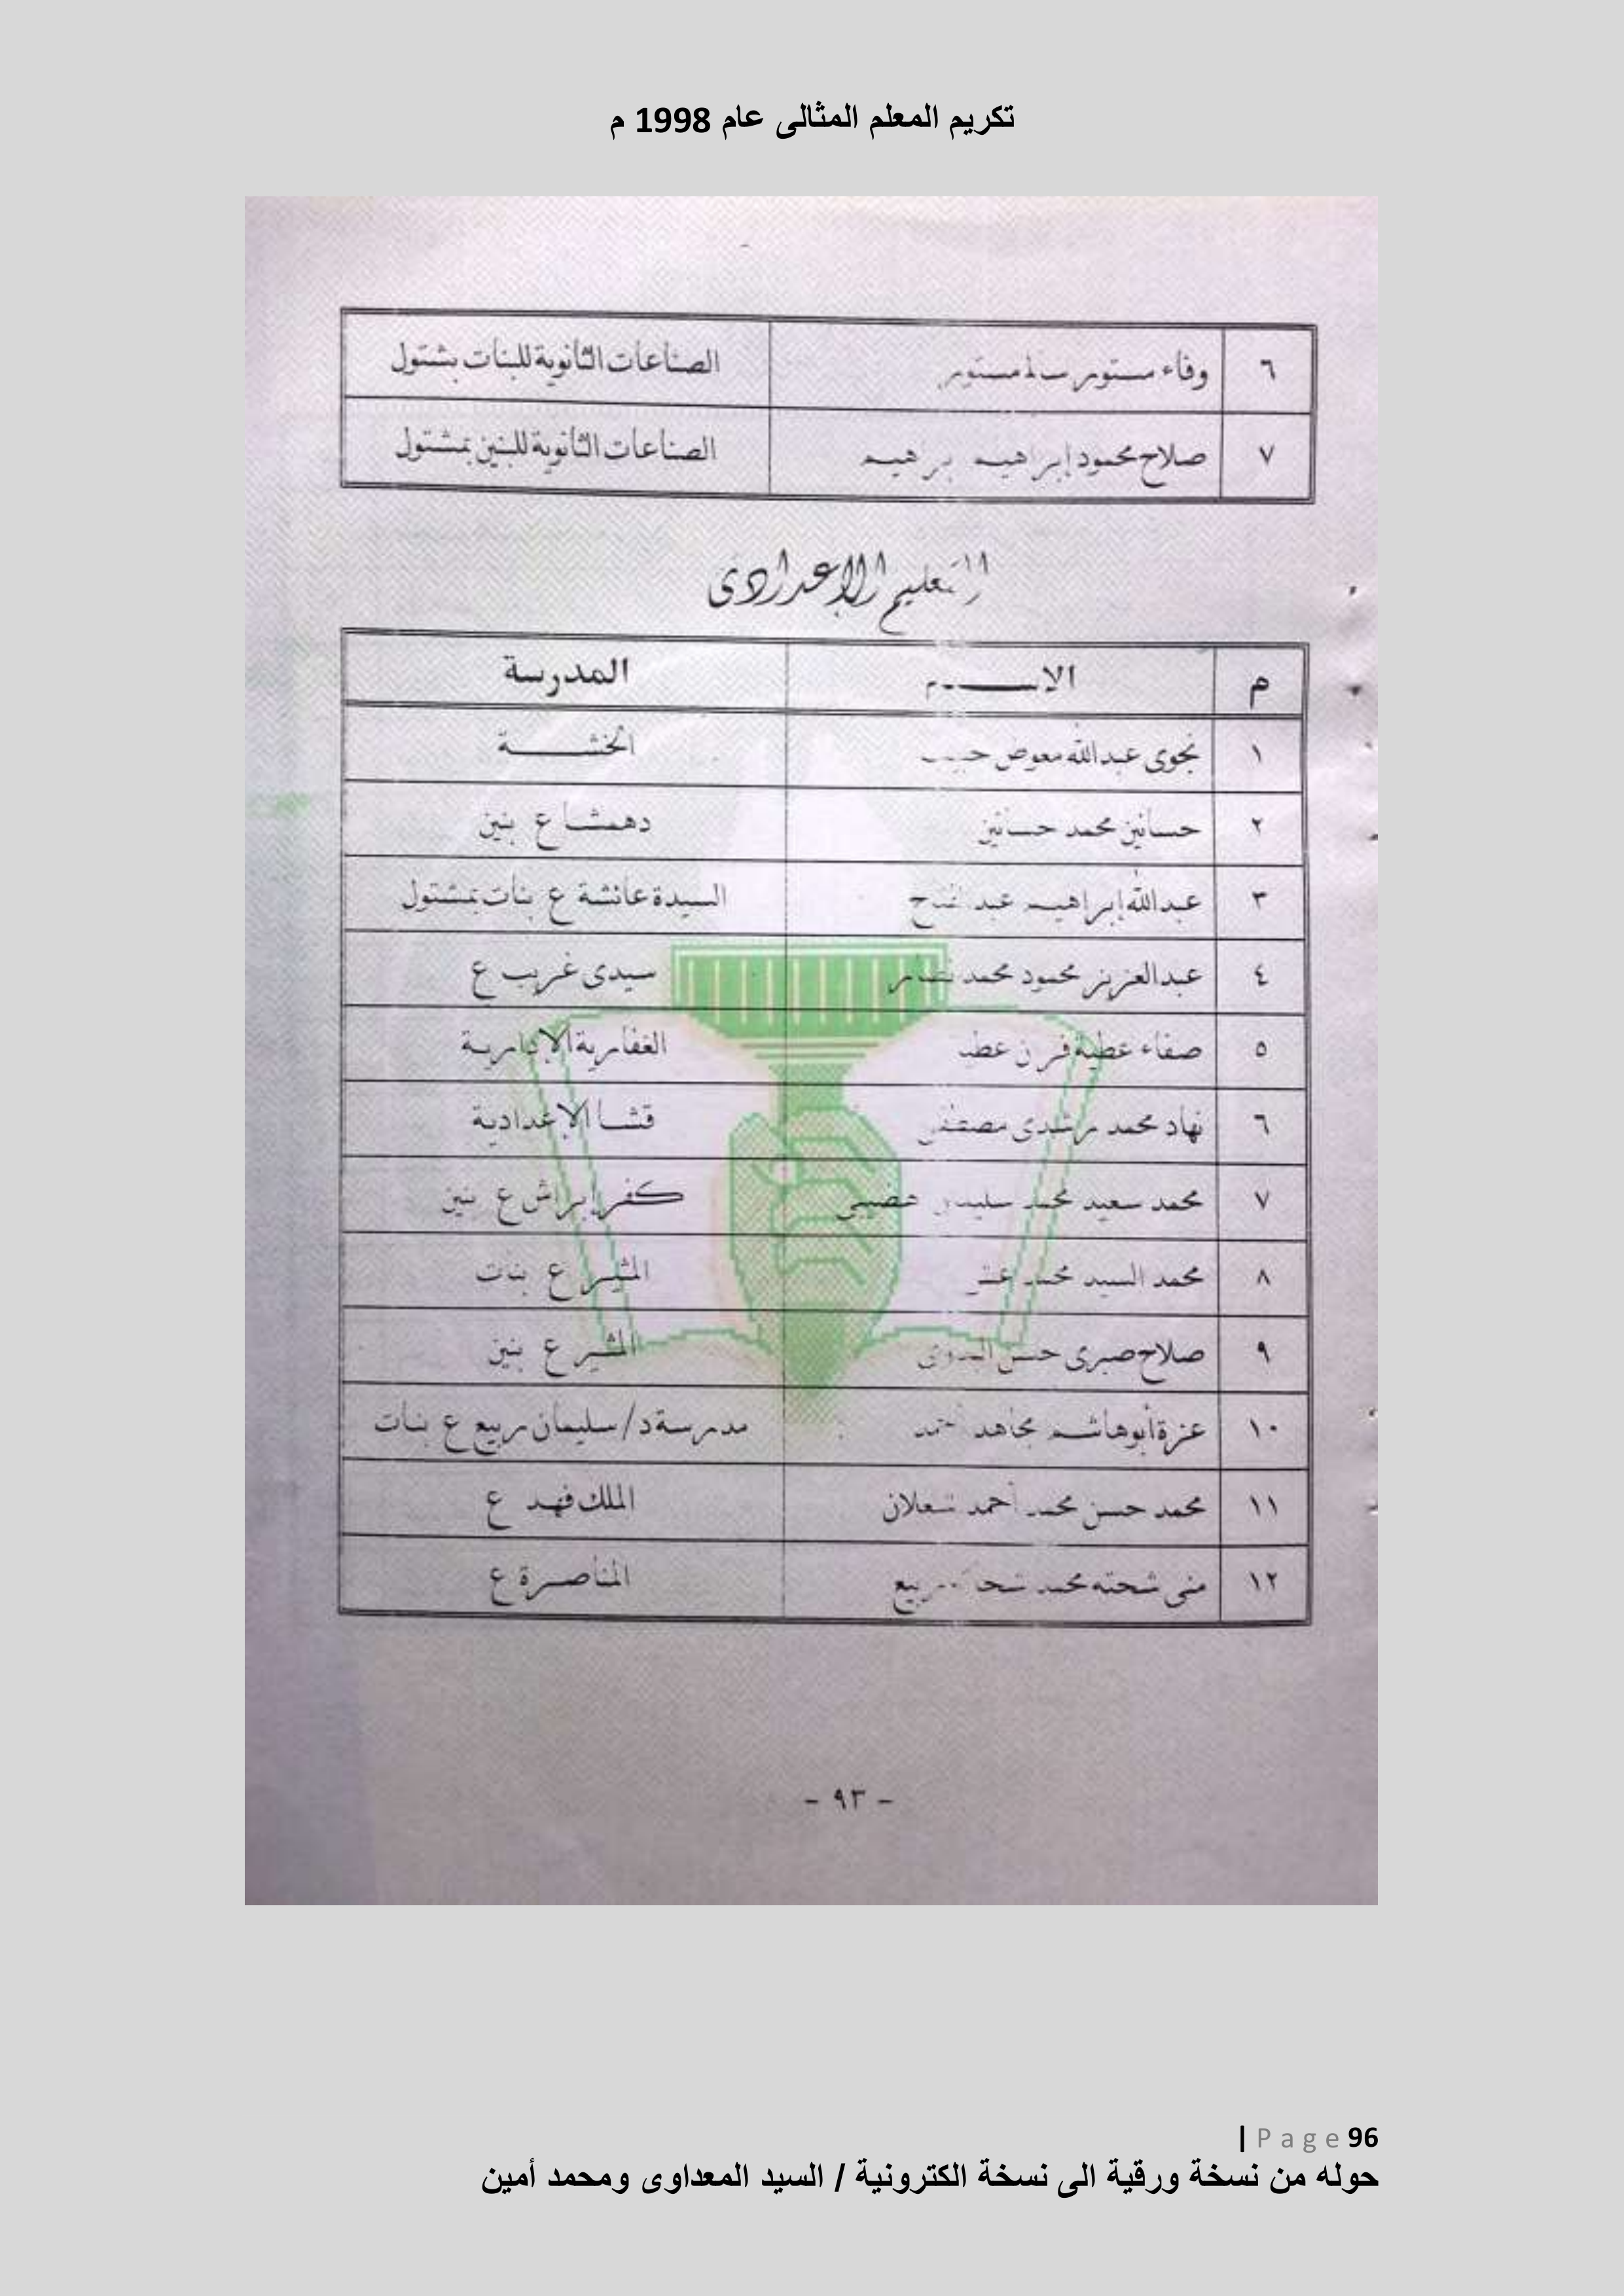 تكريم المعلم المثالى عام 1998 م
٦ وفاء مستور سالم مستور الصناعات الثانوية للبنات بشتول
٧ صلاح محمود إبراهيم إبراهيم الصناعات الثانوية للبنين بمشتول
التعليم الإعدادى
م الاسم المدرسة
١ نجوى عبدالله معوض الخشة
٢ حسانين محمد حسانين دهمشا ع بنين
٣ عبدالله إبراهيم عبد الفتاح السيدة عائشة ع بنات بمشتول
٤ عبدالعزيز محمود محمد سيدى غريب ع
٥ صفاء عطية عطية الغفارية الإعدادية
٦ نهاد محمد رشدى مصطفى قشا الإعدادية
٧ محمد سعيد محمد سليمان هضيبى كفر إبراش ع بنين
٨ محمد السيد محمد المثير ع بنات
٩ صلاح صبرى حسن المثير ع بنين
١٠ عزة أبوهاشم مجاهد أحمد مدرسة د/ سليمان ربيع ع بنات
١١ محمد حسن محمد أحمد شعلان الملك فهد ع
١٢ منى شحته محمد شحاته ربيع المناصرة ع
- ٩٣ -
96 Page |
حوله من نسخة ورقية الى نسخة الكترونية / السيد المعداوى ومحمد أمين